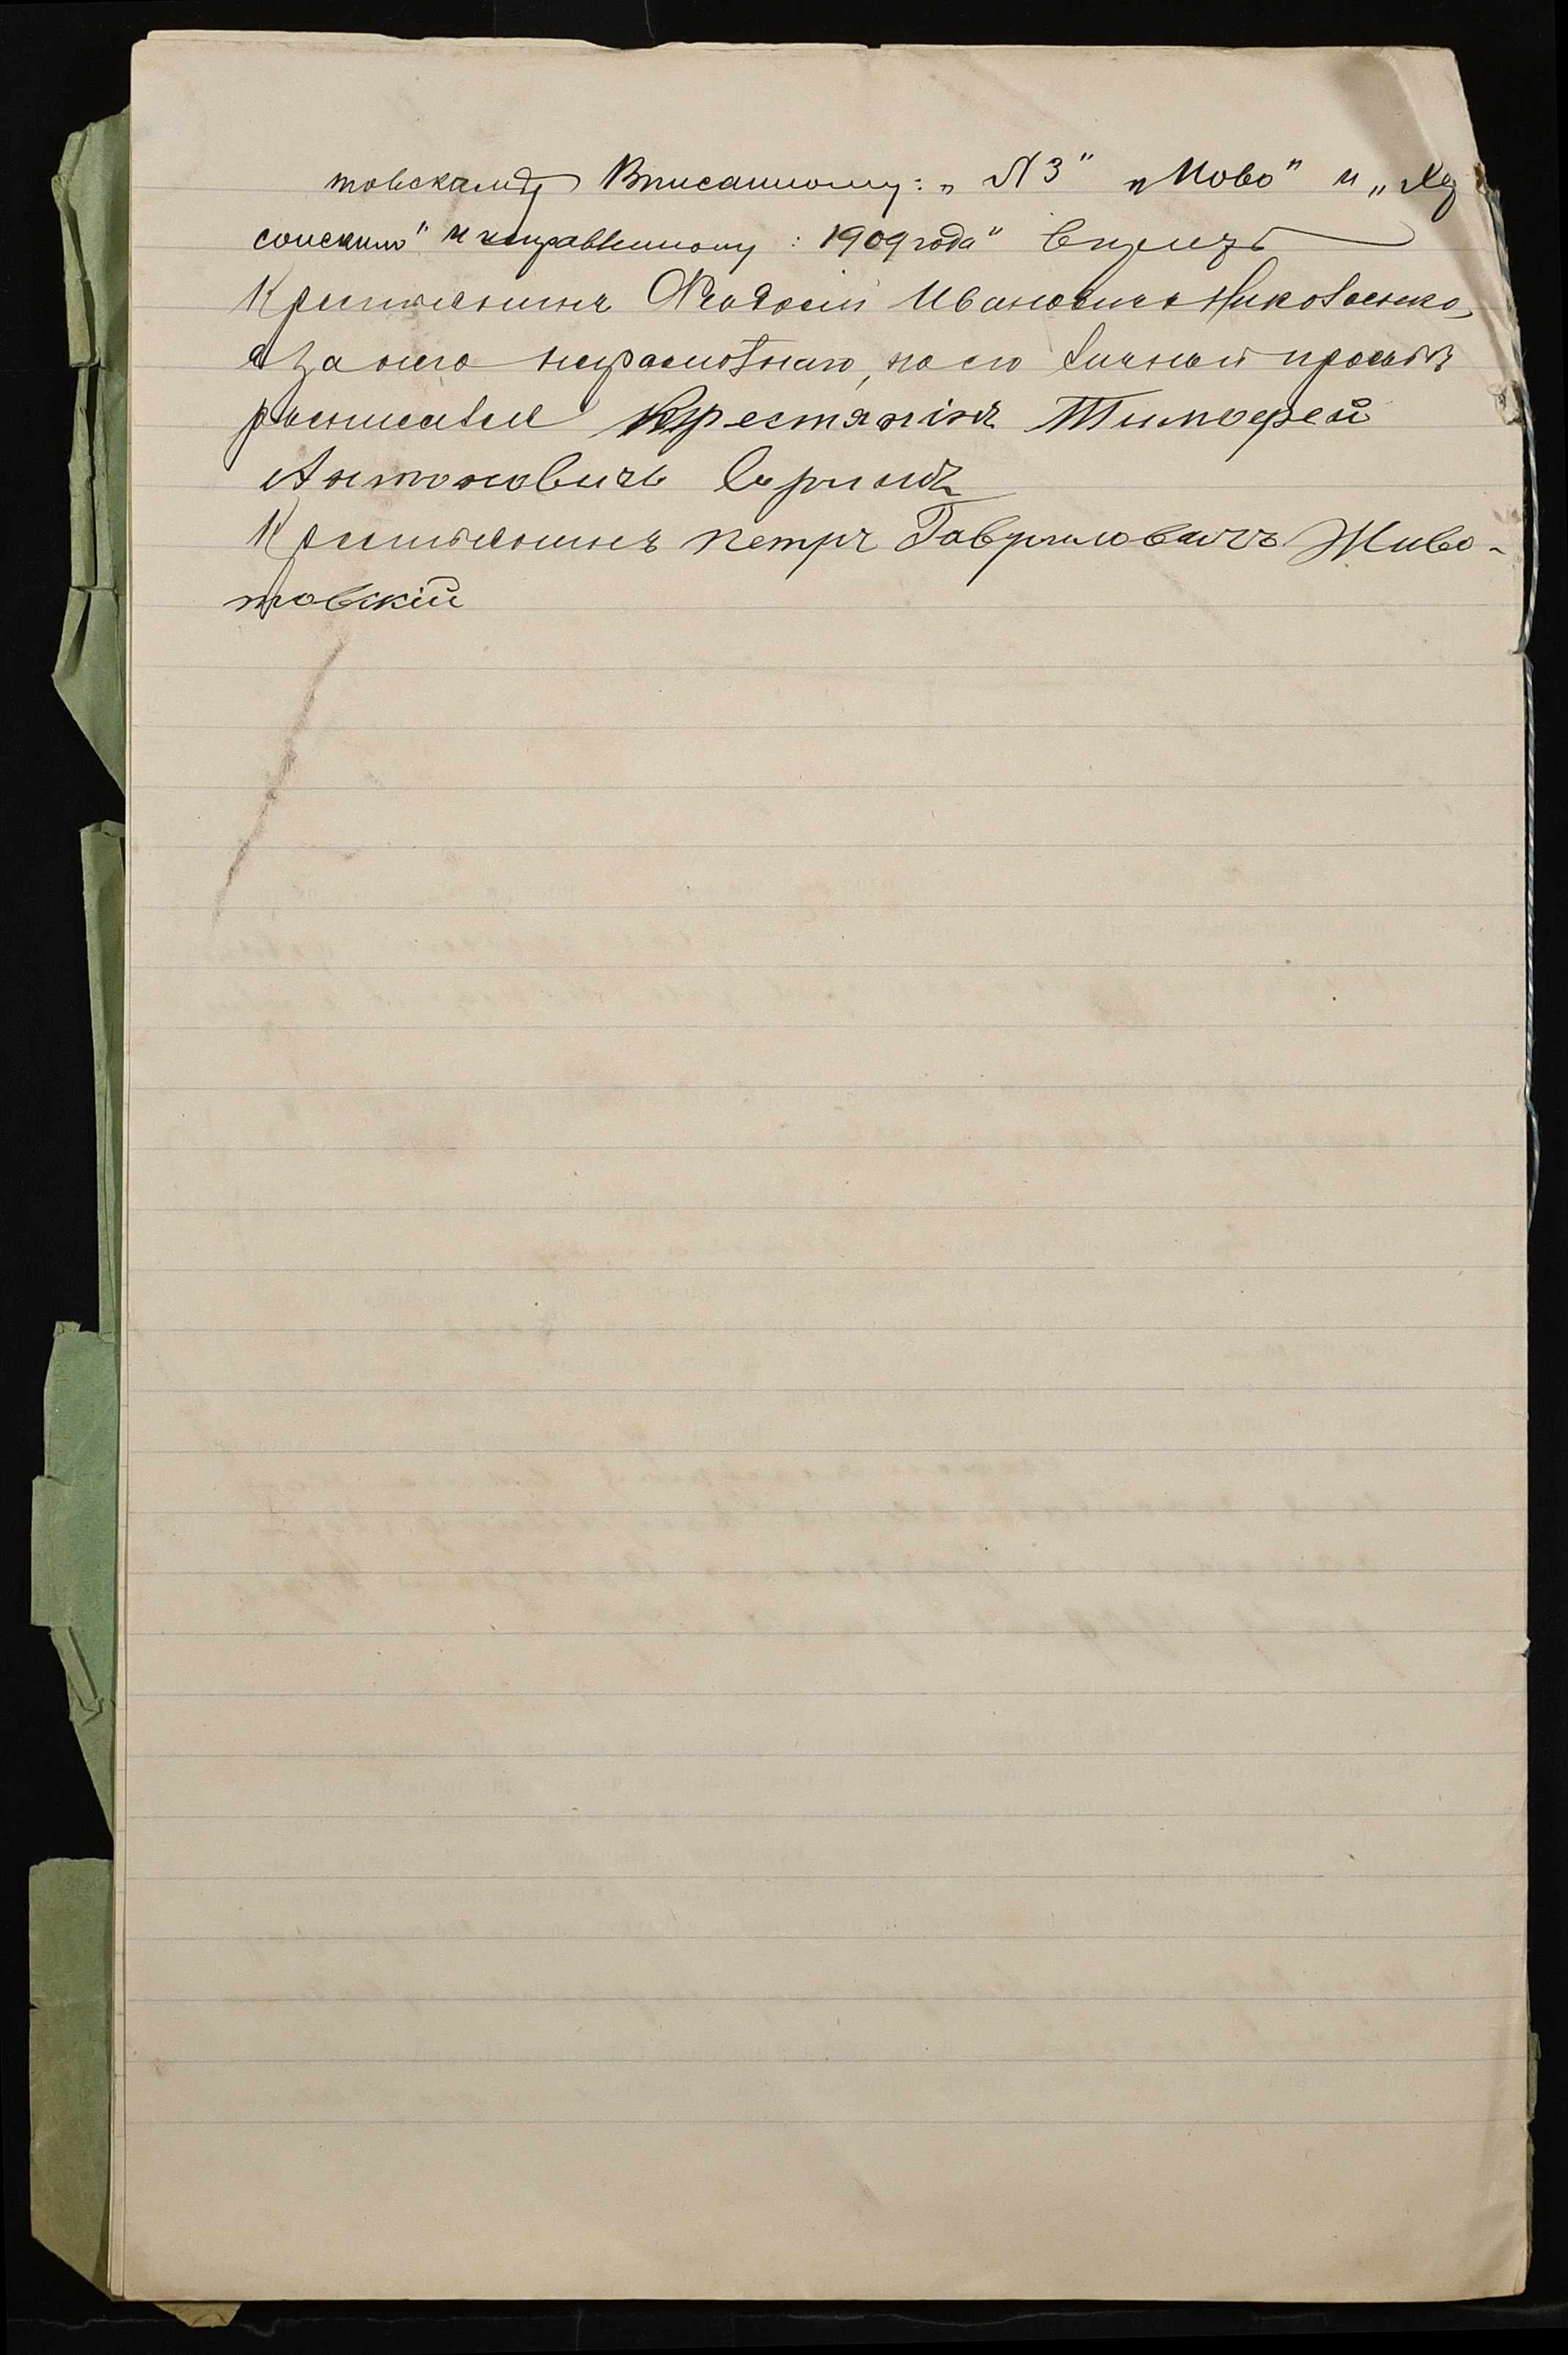 товскаму Вписанному: „ №3" „Ново" и „Хер
сонским" и исправленному : 1909 года" верить
Крестьянинъ Феодосій Ивановичъ Николаенко,
а за него неграмотнаго, по его личной просьбѣ
росписался Крестянінъ Тимофей
Антоновичъ
Крестьянинъ Петръ Гавриловичъ Живо-
товскій